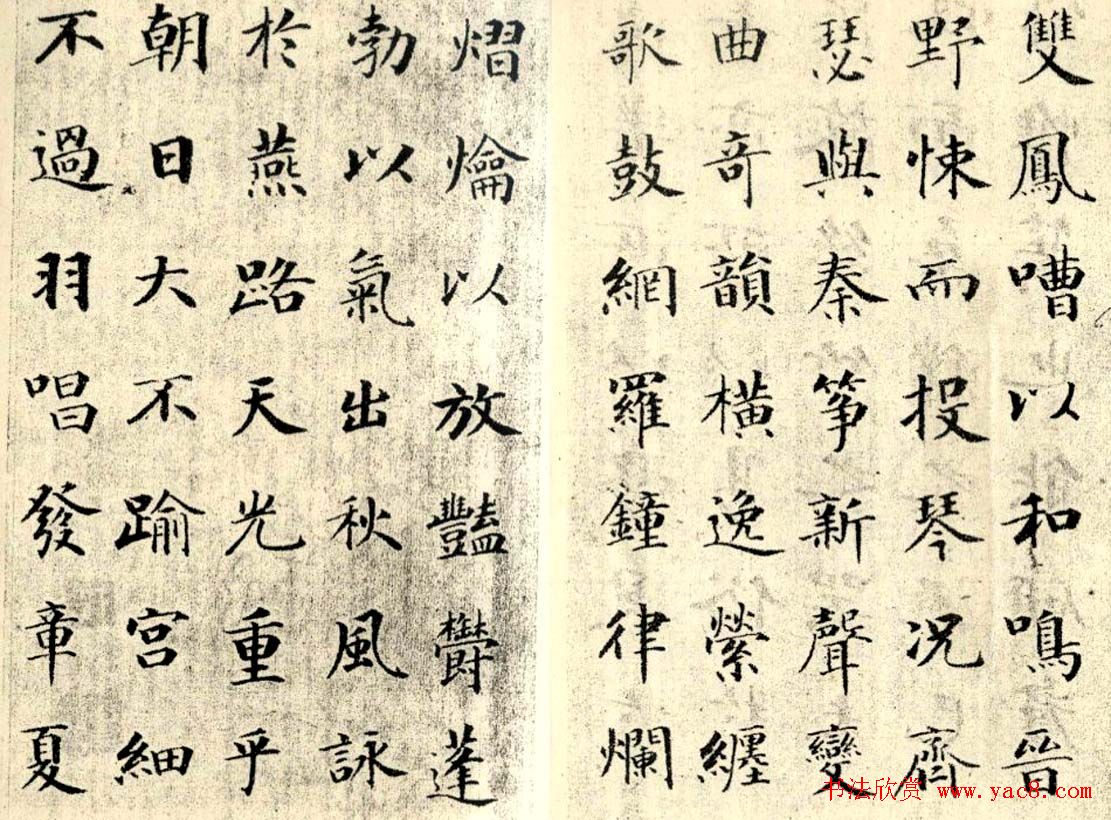 雙鳳嘈以和鳴晉
野悚而投琴況齊
瑟與秦箏新聲變
曲奇韻橫逸縈纏
歌鼓網羅鐘律爛
熠爚以放豔鬱蓬
勃以氣出秋風詠
於燕路天光重乎
朝日大不踰宮細
不過羽唱發章夏
书法欣赏 www.yac8.com